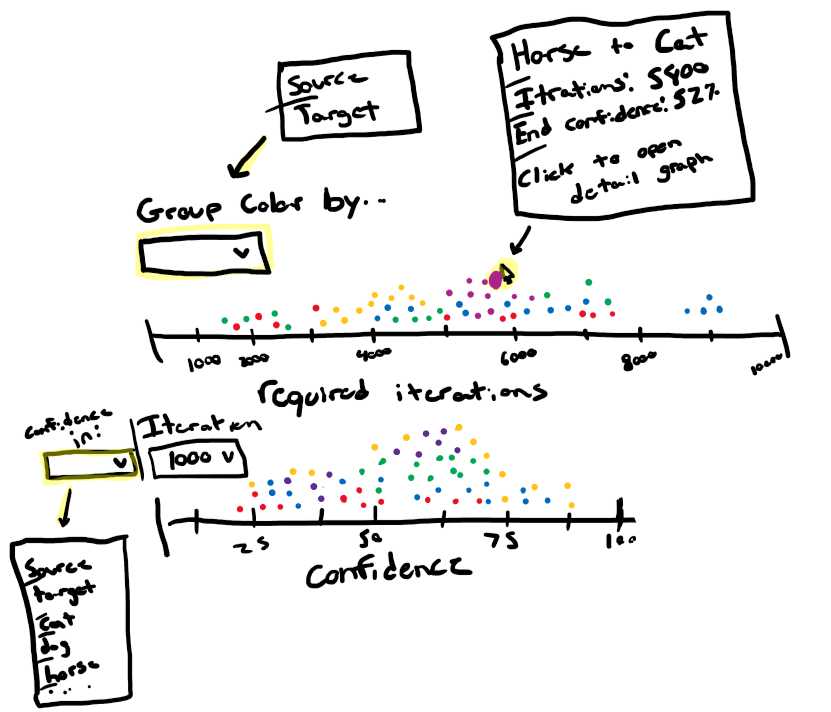 Source
Target
Horse to Cat
Itrations: 5400
End confidence: 52%
Click to open
detail graph
Group Color by...
1000 2000 4000 6000 8000 10000
required iterations
confidence
in:
Iteration
1000
25 50 75 100
Confidence
Source
target
cat
dog
horse
...